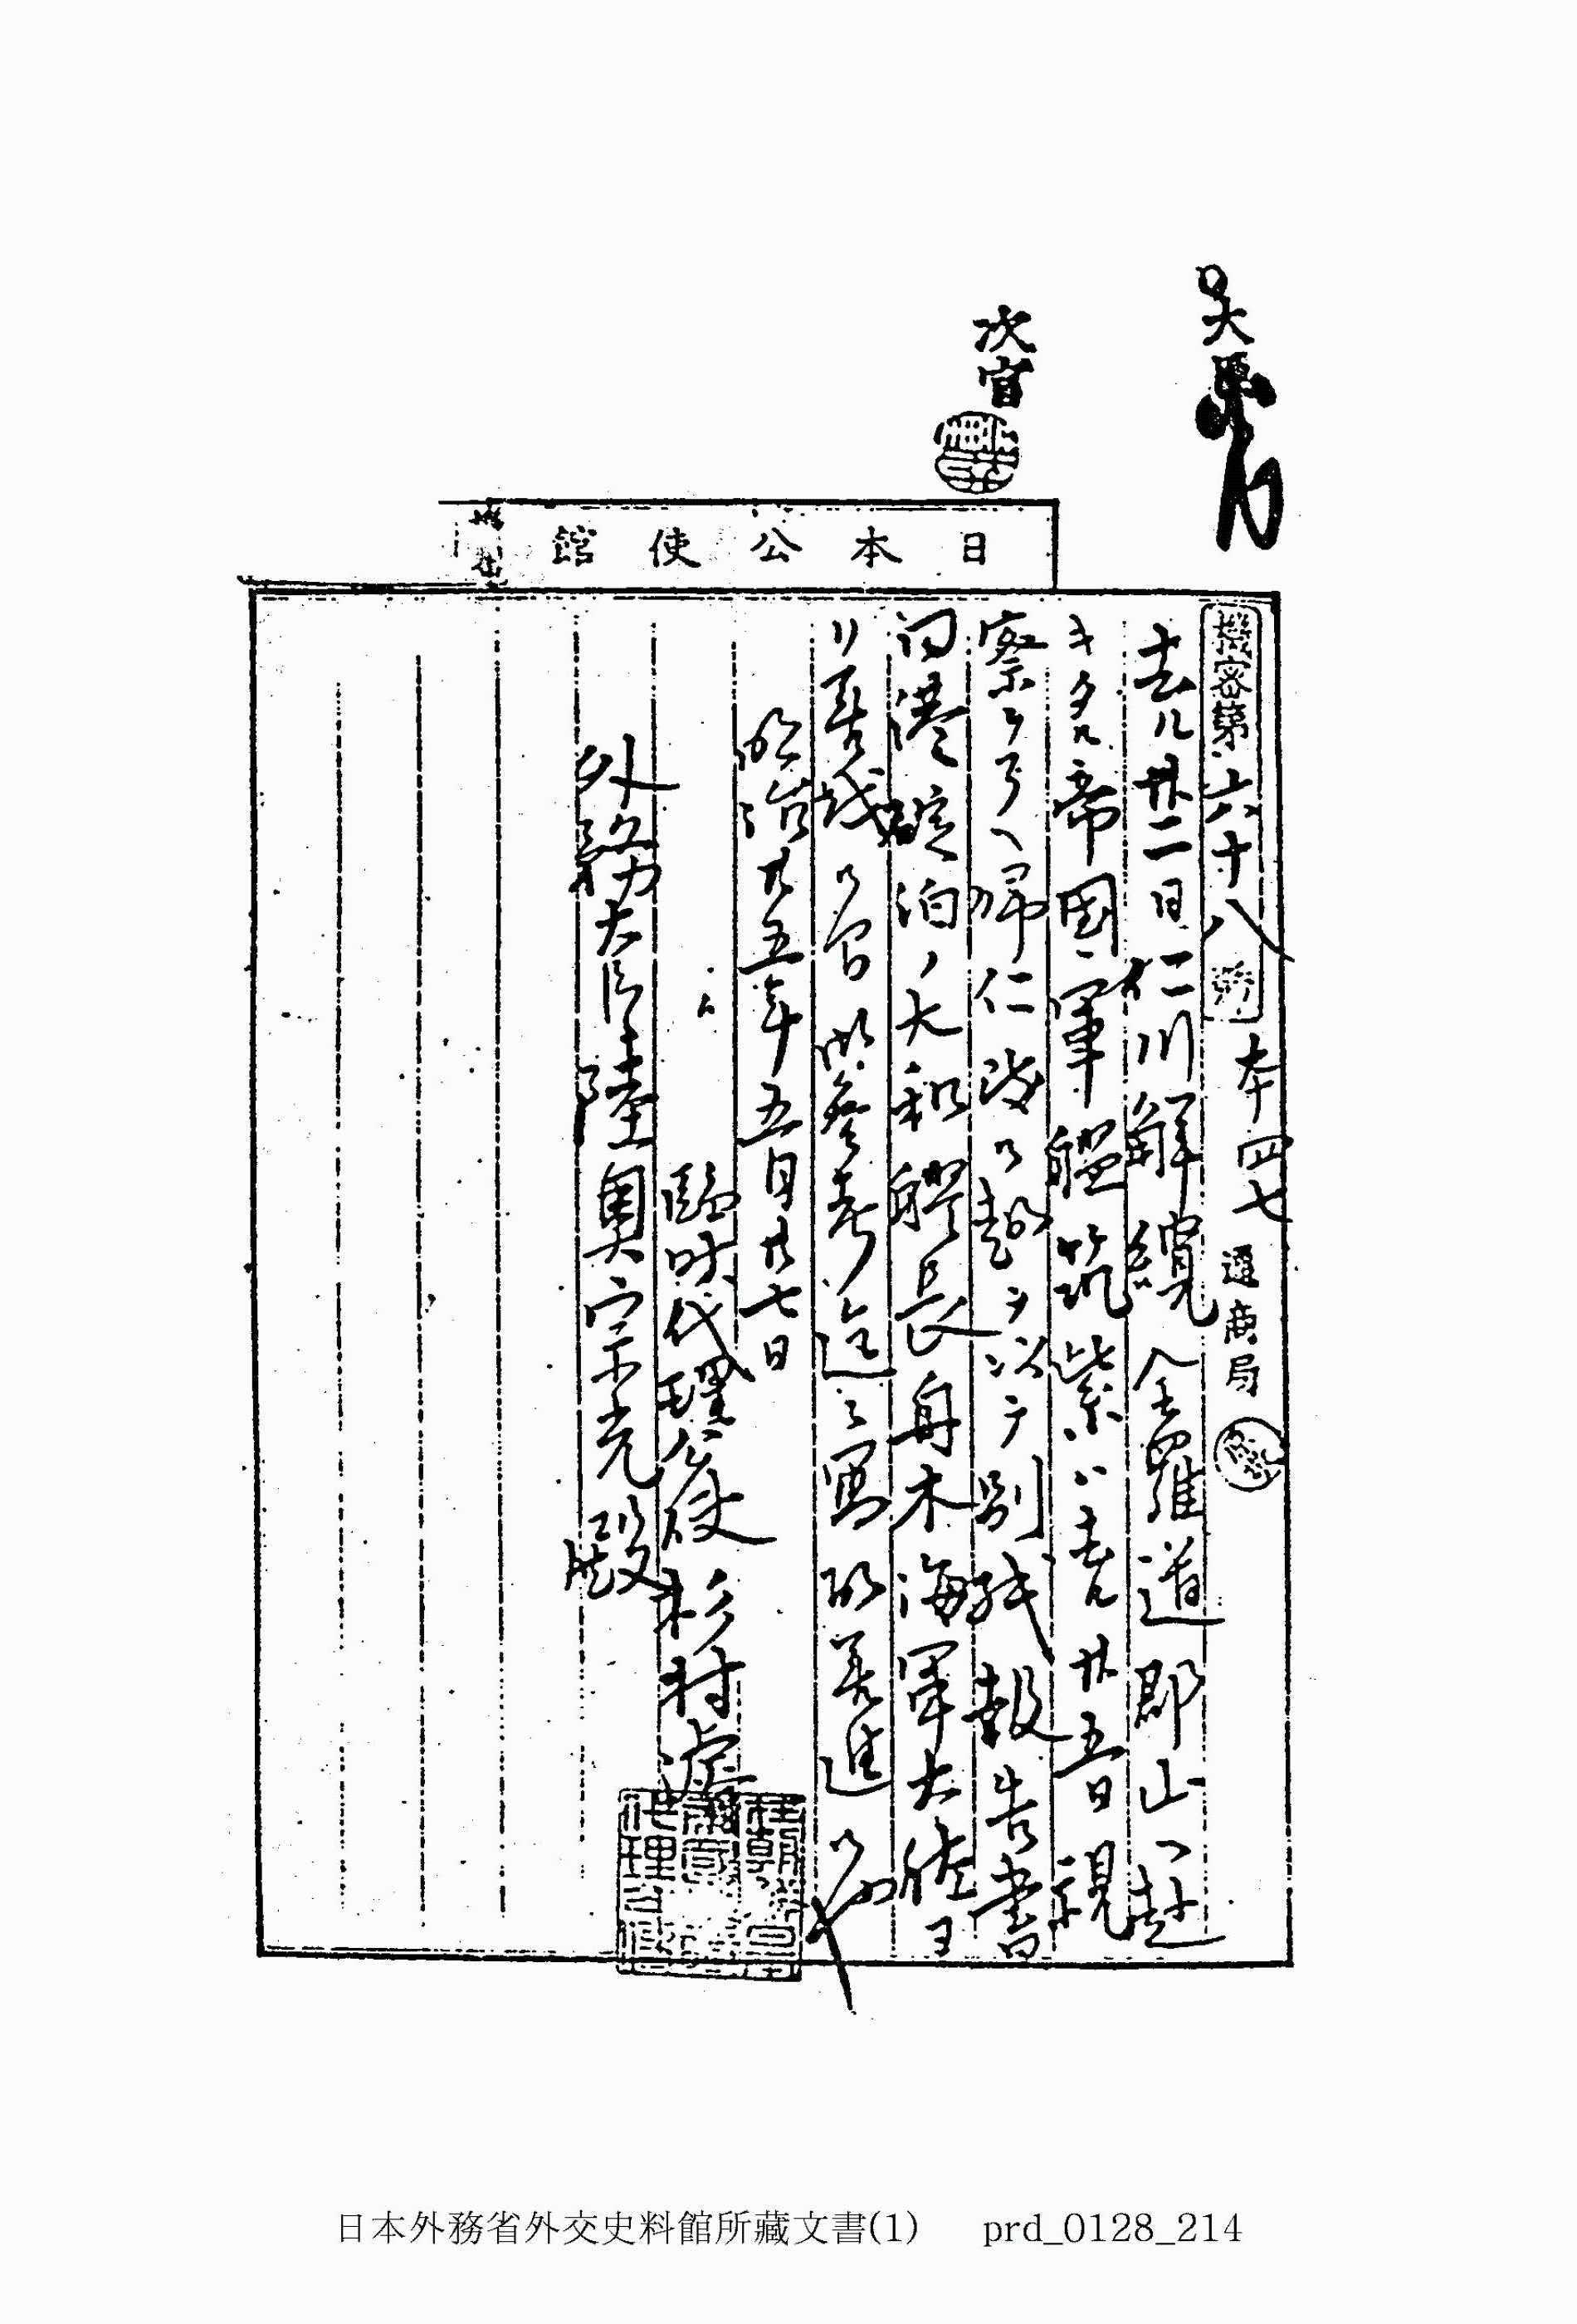 次官
日本公使館
機密第六十八號 本四七 通商局
去ル廿二日仁川解纜全羅道郡山ヘ赴
キタル帝國軍艦筑紫ハ去ル廿五日視
察ヲ了ヘ帰仁致候趣ヲ以テ別紙報告書
同港碇泊ノ大和艦長舟木海軍大佐ヨ
リ差越候間御參考迄ニ寫取差進候也
明治廿五年五月廿七日
臨時代理公使杉村濬
外務大臣陸奧宗光殿
日本外務省外交史料館所藏文書(1) prd_0128_214